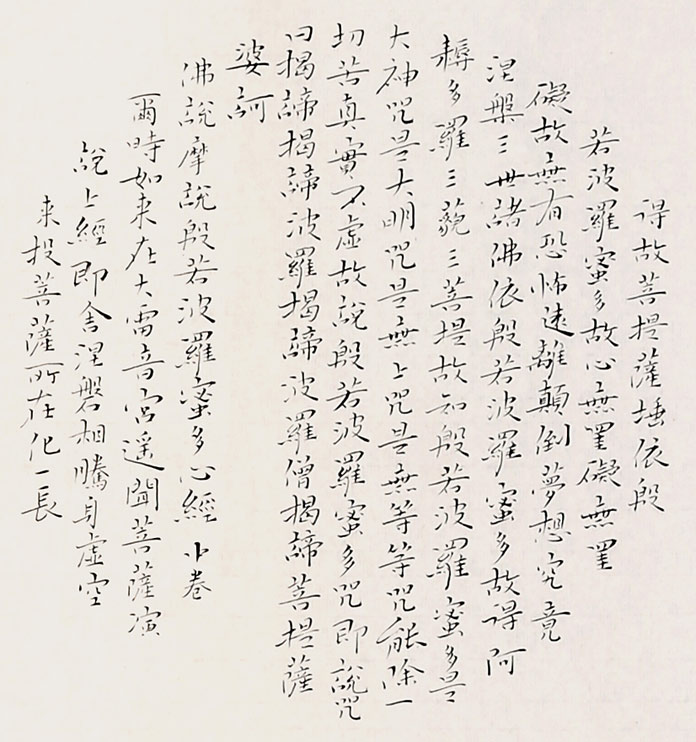 得故菩提薩埵依般
若波羅蜜多故心無罣礙無罣
礙故無有恐怖遠離顛倒夢想究竟
涅盤三世諸佛依般若波羅蜜多故得阿
耨多羅三藐三菩提故知般若波羅蜜多是
大神咒是大明咒是無上咒是無等等咒能除一
切苦真實不虛故說般若波羅蜜多咒即說咒
曰揭諦揭諦波羅揭諦波羅僧揭諦菩提薩
婆訶
佛說摩說般若波羅蜜多心經小卷
爾時如來在大雷音宮遙聞菩薩演
說上經即舍涅磐相騰身虛空
來投菩薩所在化一長